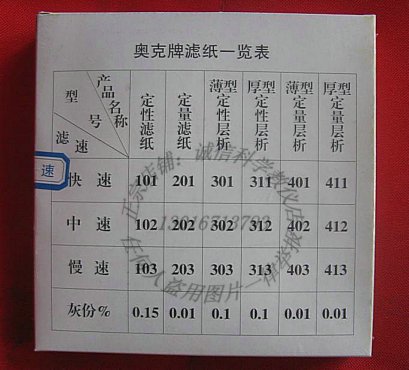 奥克牌滤纸一览表
产品名称 型号 滤速 定性滤纸 定量滤纸 薄型定性层析 厚型定性层析 薄型定量层析 厚型定量层析
快速 101 201 301 311 401 411
中速 102 202 302 312 402 412
慢速 103 203 303 313 403 413
灰份% 0.15 0.01 0.1 0.1 0.01 0.01
速
正宗店铺：诚信科学教仪店
任何人盗用图片一律举报